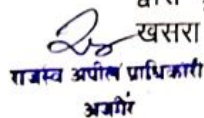 खसरा
राजस्व अपील प्राधिकारी
अजमेर